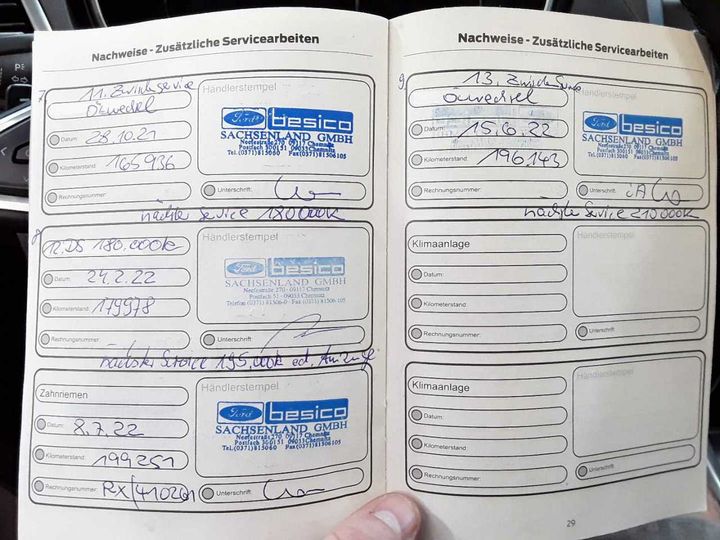 Nachweise - Zusätzliche Servicearbeiten
7.
11. Zwischenservice
Ölwechsel
Datum: 28.10.21
Kilometerstand: 165936
Rechnungsnummer:
Händlerstempel
Ford besico
SACHSENLAND GMBH
Neefestraße 270 09117 Chemnitz
Postfach 300151 09033 Chemnitz
Tel.(0371)815060 Fax(0371)81506105
Unterschrift:
nächster Service 180000k
8.
12. DS 180.000k
Datum: 24.2.22
Kilometerstand: 179978
Rechnungsnummer:
Händlerstempel
Ford besico
SACHSENLAND GMBH
Neefestraße 270 - 09117 Chemnitz
Postfach 51 - 09033 Chemnitz
Telefon (0371) 81506-0 Fax (0371) 81 506-105
Unterschrift:
nächster Service 195.000k od. Anzeige
Zahnriemen
Datum: 8.7.22
Kilometerstand: 199251
Rechnungsnummer:
Händlerstempel
Ford besico
SACHSENLAND GMBH
Neefestraße 270 09117 Chemnitz
Postfach 300151 09033 Chemnitz
Tel.(0371)815060 Fax(0371)81506105
Unterschrift:
Nachweise - Zusätzliche Servicearbeiten
9.
13. Zwischenservice
Ölwechsel
Datum: 15.6.22
Kilometerstand: 196143
Rechnungsnummer:
Händlerstempel
Ford besico
SACHSENLAND GMBH
Neefestraße 270 09117 Chemnitz
Postfach 300151 09033 Chemnitz
Tel.(0371)815060 Fax(0371)81506105
Unterschrift: iA
nächster Service 210000k
Klimaanlage
Datum:
Kilometerstand:
Rechnungsnummer:
Händlerstempel
Unterschrift:
Klimaanlage
Datum:
Kilometerstand:
Rechnungsnummer:
Händlerstempel
Unterschrift:
29